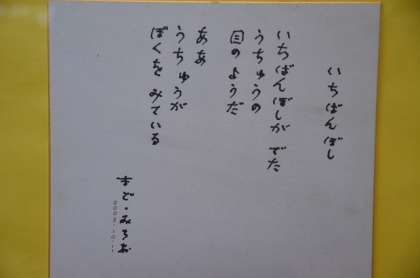 いちばんぼし
いちばんぼしが でた
うちゅうの
目のようだ
ああ
うちゅうが
ぼくを みている
まど・みちお